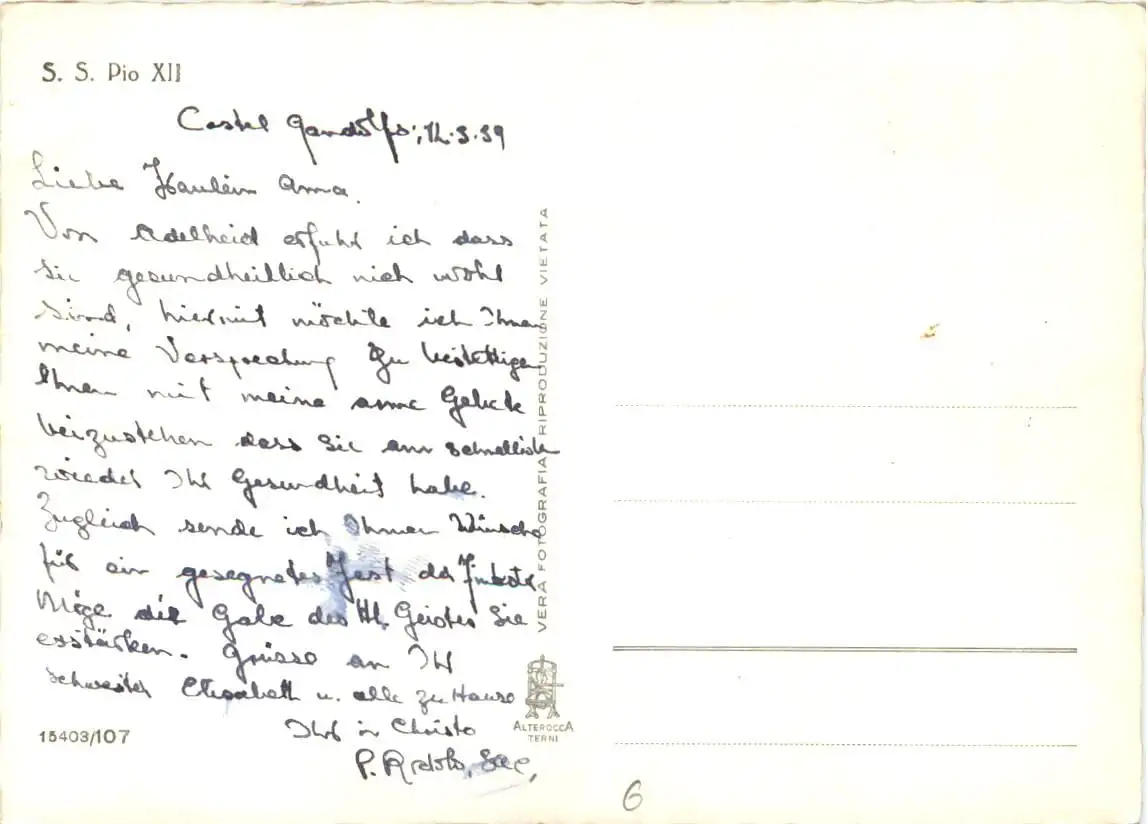 S. S. Pio XII
Castel Gandolfo, 12.5.59
Liebe Fräulein Anna.
Von Adelheid erfuhr ich dass
Sie gesundheitlich nich wohl
sind, hiermit möchte ich Ihnen
meine Versprechung zu bestettigen
Ihnen mit meine arme Gebete
beizustehen dass Sie am schnellsten
wieder Ihr Gesundheit habe.
Zugleich sende ich Ihnen Wünsche
für ein gesegnetes Fest der
Möge die Gabe des Hl. Geistes Sie
erstärken. Grüsse an Ihr
Schwester Elisabeth u. alle zu Hause
Ihr in Christo
P.
VERA FOTOGRAFIA RIPRODUZIONE VIETATA
ALTEROCCA
TERNI
15403/107
6